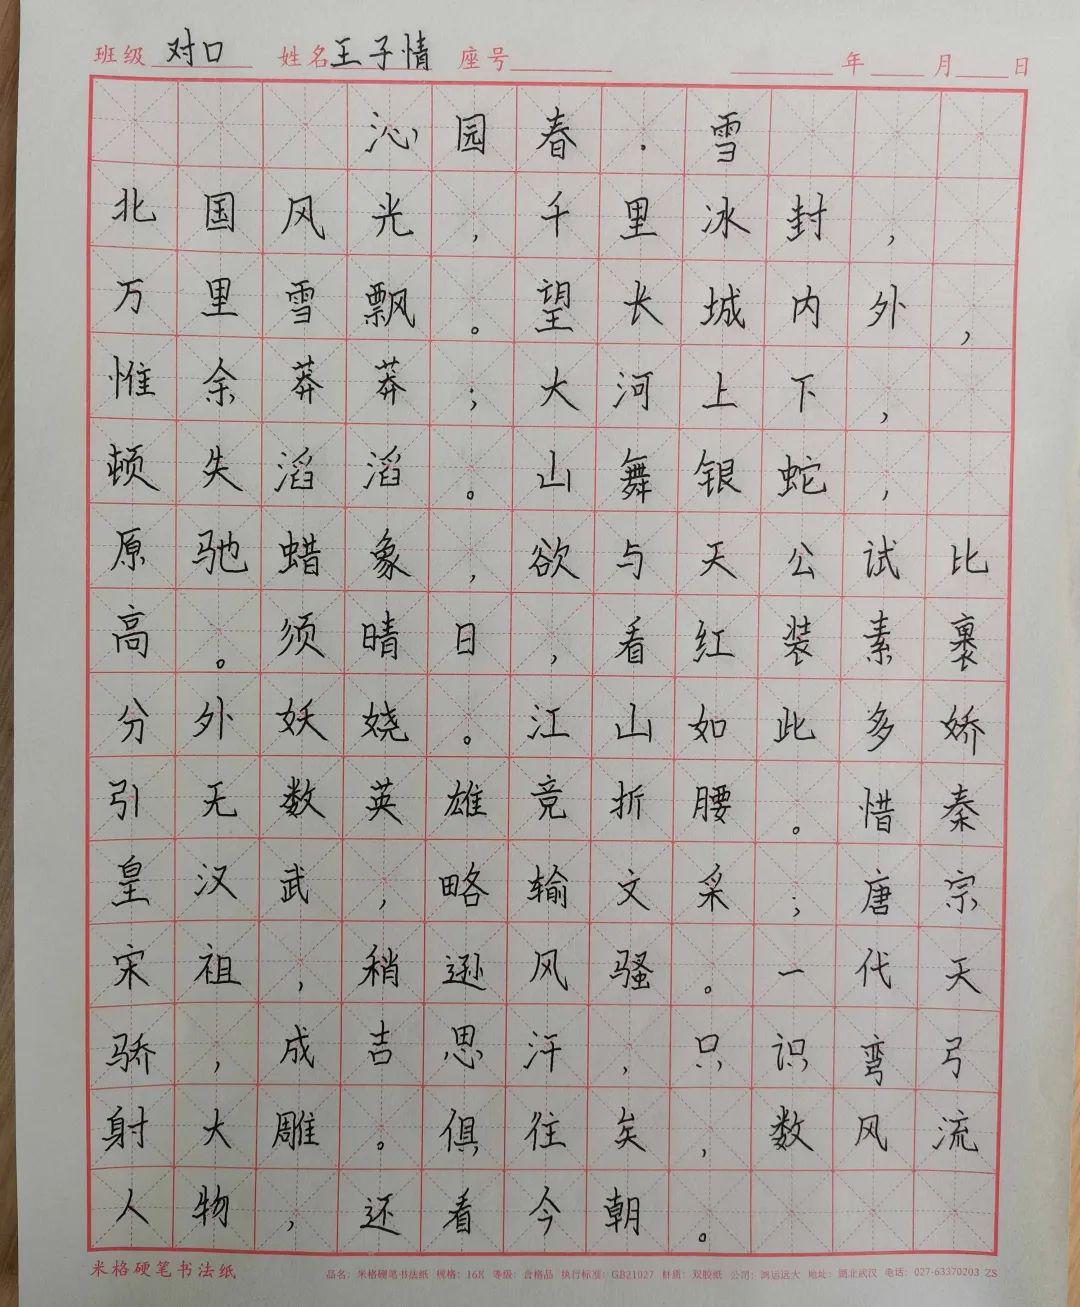 班级 对口 姓名 王子情 座号 年 月 日
沁园春·雪
北国风光,千里冰封,
万里雪飘。望长城内外,
惟余莽莽;大河上下,
顿失滔滔。山舞银蛇,
原驰蜡象,欲与天公试比
高。须晴日,看红装素裹
分外妖娆。江山如此多娇
引无数英雄竞折腰。惜秦
皇汉武,略输文采;唐宗
宋祖,稍逊风骚。一代天
骄,成吉思汗,只识弯弓
射大雕。俱往矣,数风流
人物,还看今朝。
米格硬笔书法纸 品名:米格硬笔书法纸 规格:16K 等级:合格品 执行标准:GB21027 材质:双胶纸 公司:鸿运远大 地址:湖北武汉 电话:027-63370203 ZS